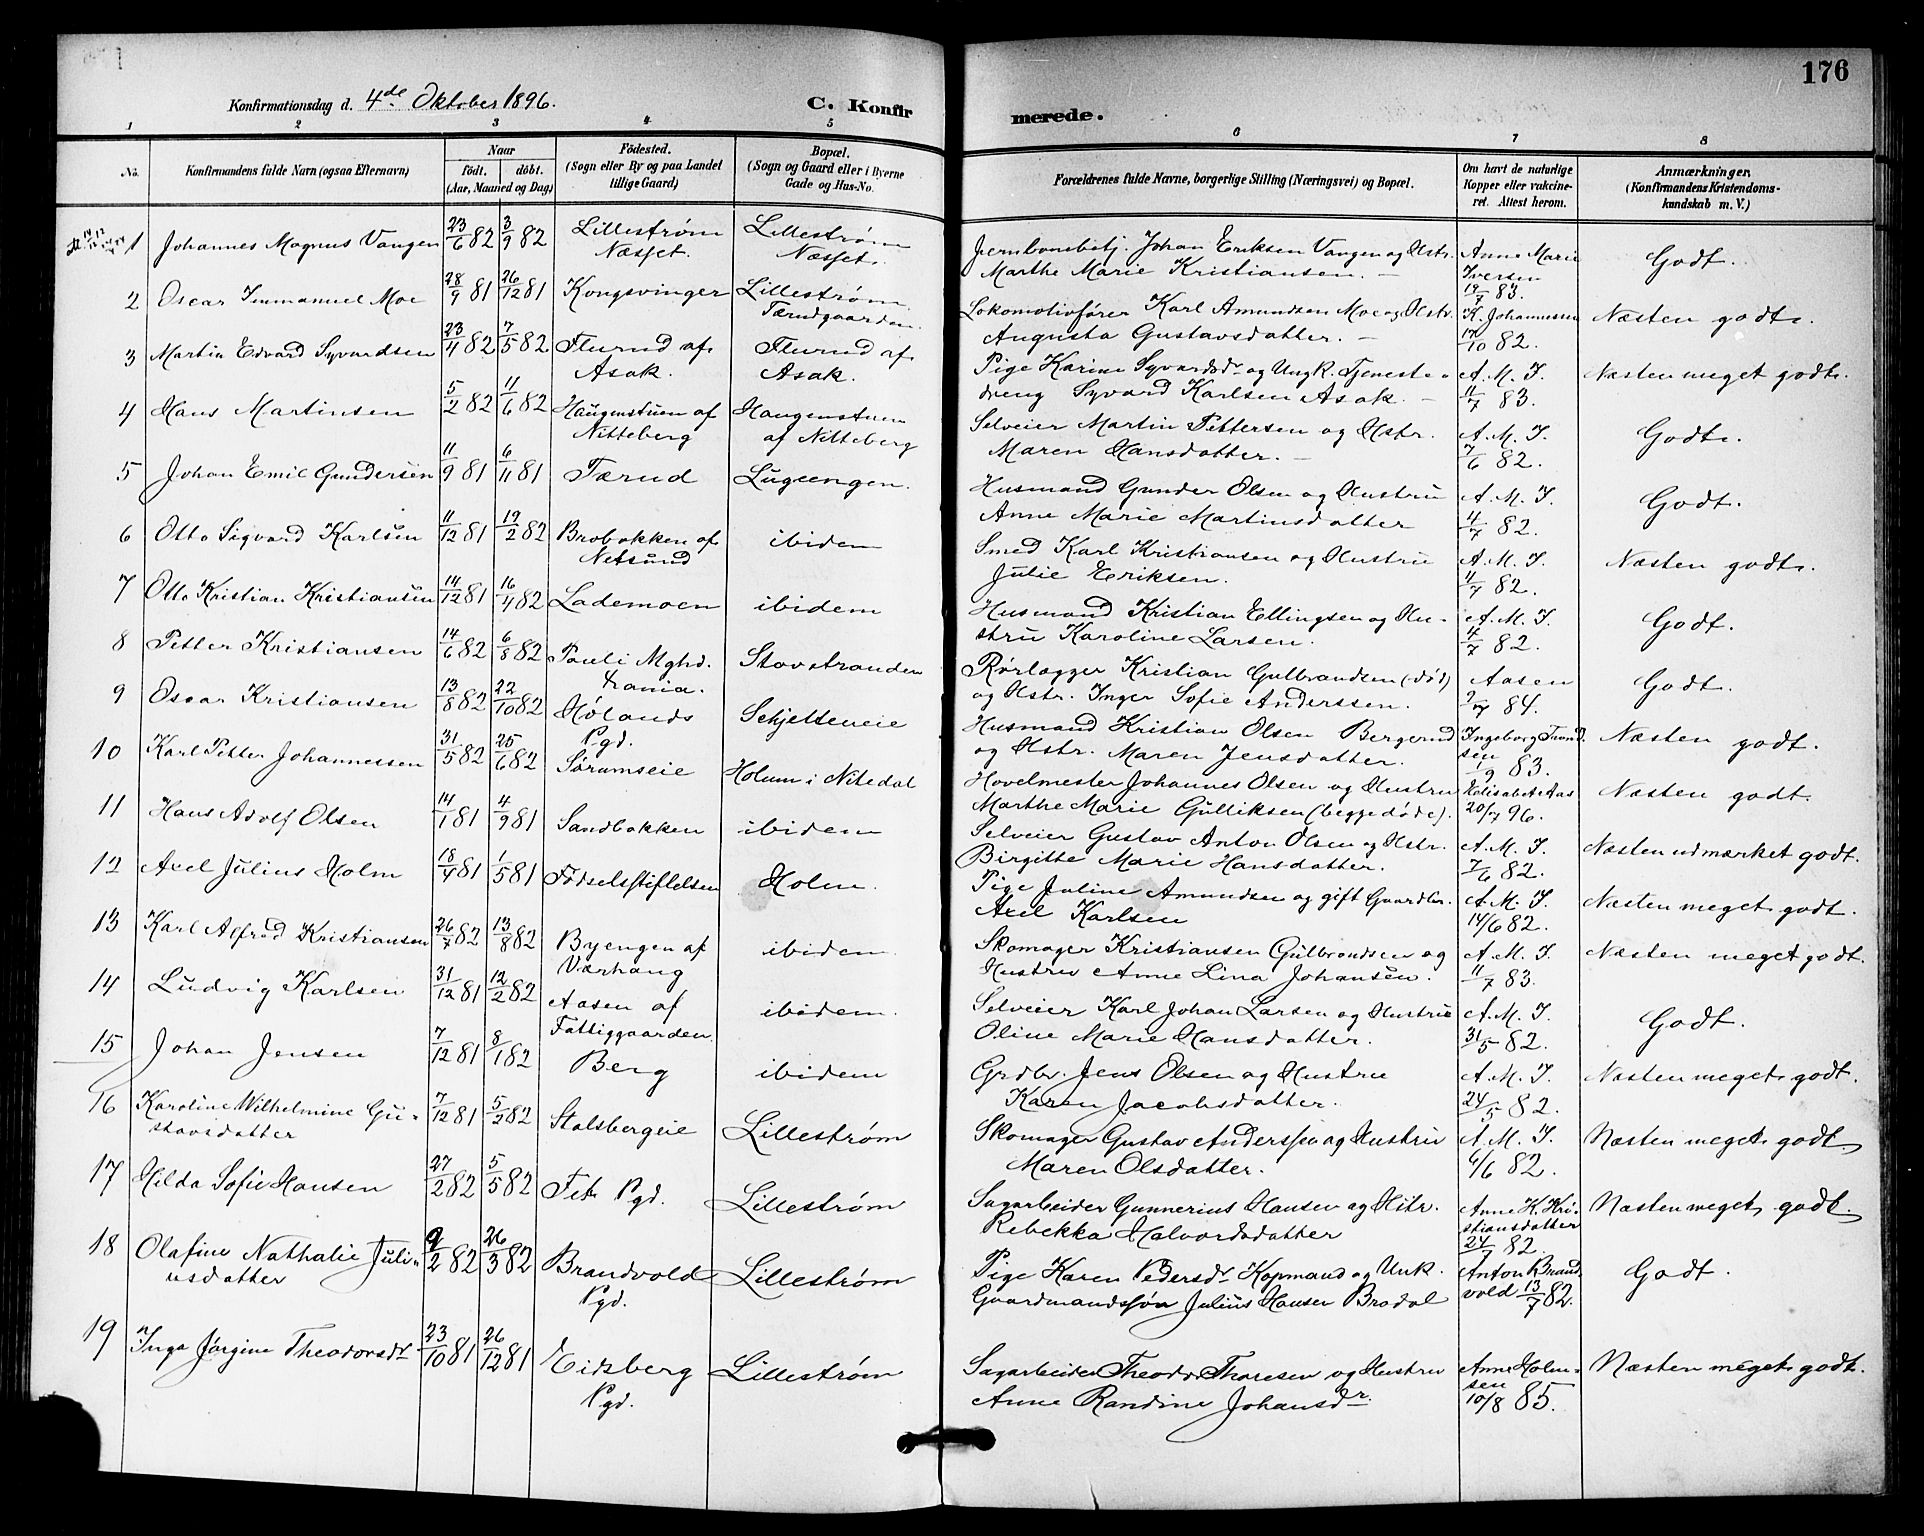 176
Konfirmationsdag d. 4de Oktober 1896.
C. Konfir
merede.
1 2 3 4 5
6 7 8
No.
Konfirmandens fulde Navn (ogsaa Efternavn)
Naar
født. døbt.
(Aar, Maaned og Dag)
Födested.
(Sogn eller By og paa Landet
tillige Gaard)
Bopæl.
(Sogn og Gaard eller i Byerne
Gade og Hus-No.
Forældrenes fulde Navne, borgerlige Stilling (Næringsvei) og Bopæl.
Om havt de naturlige
Kopper eller vakcine-
ret. Attest herom.
Anmærkninger.
(Konfirmandens Kristendoms-
kundskab m. V.)
1 Johannes Magnus Vangen 23/6 82 3/9 82 Lillestrøm Lillestrøm
Næsset. Næsset.
Jernbanebetj. Johan Eriksen Vangen og Hstr. Anne Marie Godt.
Marthe Marie Kristiansen. — Iversen
19/7 83.
2 Oscar Immanuel Moe 28/9 81 26/12 81 Kongsvinger Lillestrøm
Tærudgaarden.
Lokomotivfører Karl Amundsen Moe og Hstr. K. Johannessen Næsten godt.
Augusta Gustavsdatter. — 17/10 82.
3 Martin Edvard Syvardsen 23/4 82 7/5 82 Flurud af Flurud af
Asak. Asak.
Pige Karine Syvardsdr og Ungk. Tjeneste- A. M. I. Næsten meget godt.
dreng Syvard Karlsen Asak. — 11/7 83.
4 Hans Martinsen 5/2 82 11/6 82 Haugenstuen af Haugenstuen
Nitteberg af Nitteberg
Selveier Martin Pettersen og Hstr. A. M. I. Godt.
Maren Hansdatter. — 7/6 82.
5 Johan Emil Gundersen 11/9 81 6/11 81 Tærud Lugeengen.
Husmand Gunder Olsen og Hustru A. M. I. Godt.
Anne Marie Martinsdatter 4/7 82.
6 Otto Sigvard Karlsen 11/12 81 19/2 82 Brobakken af ibidem
Netsund
Smed Karl Kristiansen og Hustru A. M. I. Næsten godt.
Julie Eriksen. 11/7 82.
7 Otto Kristian Kristiansen 14/12 81 16/4 82 Lademoen ibidem
Husmand Kristian Ellingsen og Hu- A. M. I. Godt.
stru Karoline Larsen. 4/7 82.
8 Petter Kristiansen 14/6 82 6/8 82 Pauli Mghd. Stavstranden
trania.
Rørlægger Kristian Gulbrandsen (død) Aasen Godt.
og Hstr. Inger Sofie Anderssen. 84.
9 Oscar Kristiansen 13/8 82 22/10 82 Hølands Schjetteneie
Pgd.
Husmand Kristian Olsen Bergerud Ingeborg Næsten godt.
og Hstr. Maren Jensdatter. 1/9 83.
10 Karl Petter Johannessen 31/5 82 25/6 82 Sørumseie Holum i Nitedal
Hovelmester Johannes Olsen og Hustru Næsten godt.
Marthe Marie Gulliksen (begge døde). 20/7 96.
11 Hans Adolf Olsen 14/1 81 4/9 81 Sandbakken ibidem
Selveier Gustav Anton Olsen og Hstr. A. M. I. Næsten udmærket godt.
Birgitte Marie Hansdatter. 7/6 82.
12 Axel Julius Holm 18/4 81 1/5 81 Fødselsstiftelsen Holm.
Pige Juline Amundsen og gift Gaardbr. A. M. I. Næsten meget godt.
Axel Karlsen 14/6 82.
13 Karl Alfred Kristiansen 26/7 82 13/8 82 Byengen af ibidem.
Værhaug
Skomager Kristiansen Gulbrandsen og A. M. I. Næsten meget godt.
Hustru Anne Lina Johansen. 11/7 83.
14 Ludvig Karlsen 31/12 81 12/2 82 Aasen af ibidem.
Fattiggaarden.
Selveier Karl Johan Larsen og Hustru A. M. I. Godt.
Oline Marie Hansdatter. 31/5 82.
15 Johan Jensen 7/12 81 8/1 82 Berg ibidem
Grdbr. Jens Olsen og Hustru A. M. I. Næsten meget godt.
Karen Jacobsdatter. 24/5 82.
16 Karoline Wilhelmine Gu- 7/12 81 5/2 82 Stalsbergeie Lillestrøm
stavsdatter
Skomager Gustav Anderssen og Hustru A. M. I. Næsten meget godt
Maren Olsdatter. 6/6 82.
17 Hilda Sofie Hansen 27/2 82 5/5 82 Fet Pgd. Lillestrøm
Sagarbeider Gunnerius Hansen og Hstr. Anne K. Kri- Næsten meget godt.
Rebekka Halvorsdatter stiansdatter
24/7 82.
18 Olafine Nathalie Juli- 9/2 82 26/3 82 Brandvold Lillestrøm
usdatter Pgd.
Pige Karen Pedersdr Kopmand og Unk. Anton Brand- Godt.
Gaardmandssøn Julius Hansen Brodal vold 13/7 82.
19 Inga Jørgine Theodorsdr 23/10 81 26/12 81 Eidsberg Lillestrøm
Pgd.
Sagarbeider Theodor Thoresen og Hustru Anne Holm- Næsten meget godt.
Anne Randine Johansdr. sen
10/8 85.